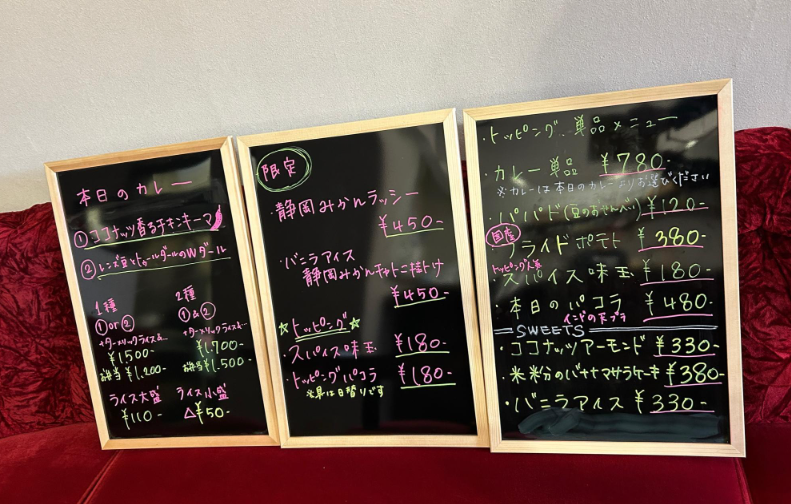 本日のカレー
① ココナッツ香るチキンキーマ
② レンズ豆とトゥールダールのWダール
1種
① or ②
+ターメリックライス
¥1500-
弁当 ¥1,200-
ライス大盛
¥110-
2種
① & ②
+ターメリックライス
¥1,700-
弁当 ¥1,500-
ライス小盛
△¥50-
限定
・静岡みかんラッシー
¥450-
・バニラアイス
静岡みかんチャトニ
¥450-
☆トッピング☆
・スパイス味玉 ¥180-
・トッピングパコラ ¥180-
※具は日替りです
・トッピング、単品メニュー
・カレー単品 ¥780-
※カレーは本日のカレーよりお選びください
・パパド(豆のおせんべい) ¥120-
国産
・フライドポテト ¥380-
トッピング人気
・スパイス味玉 ¥180-
・本日のパコラ ¥480-
インドの天プラ
SWEETS
・ココナッツアーモンド ¥330-
・米粉のバナナマサラケーキ ¥380-
・バニラアイス ¥330-